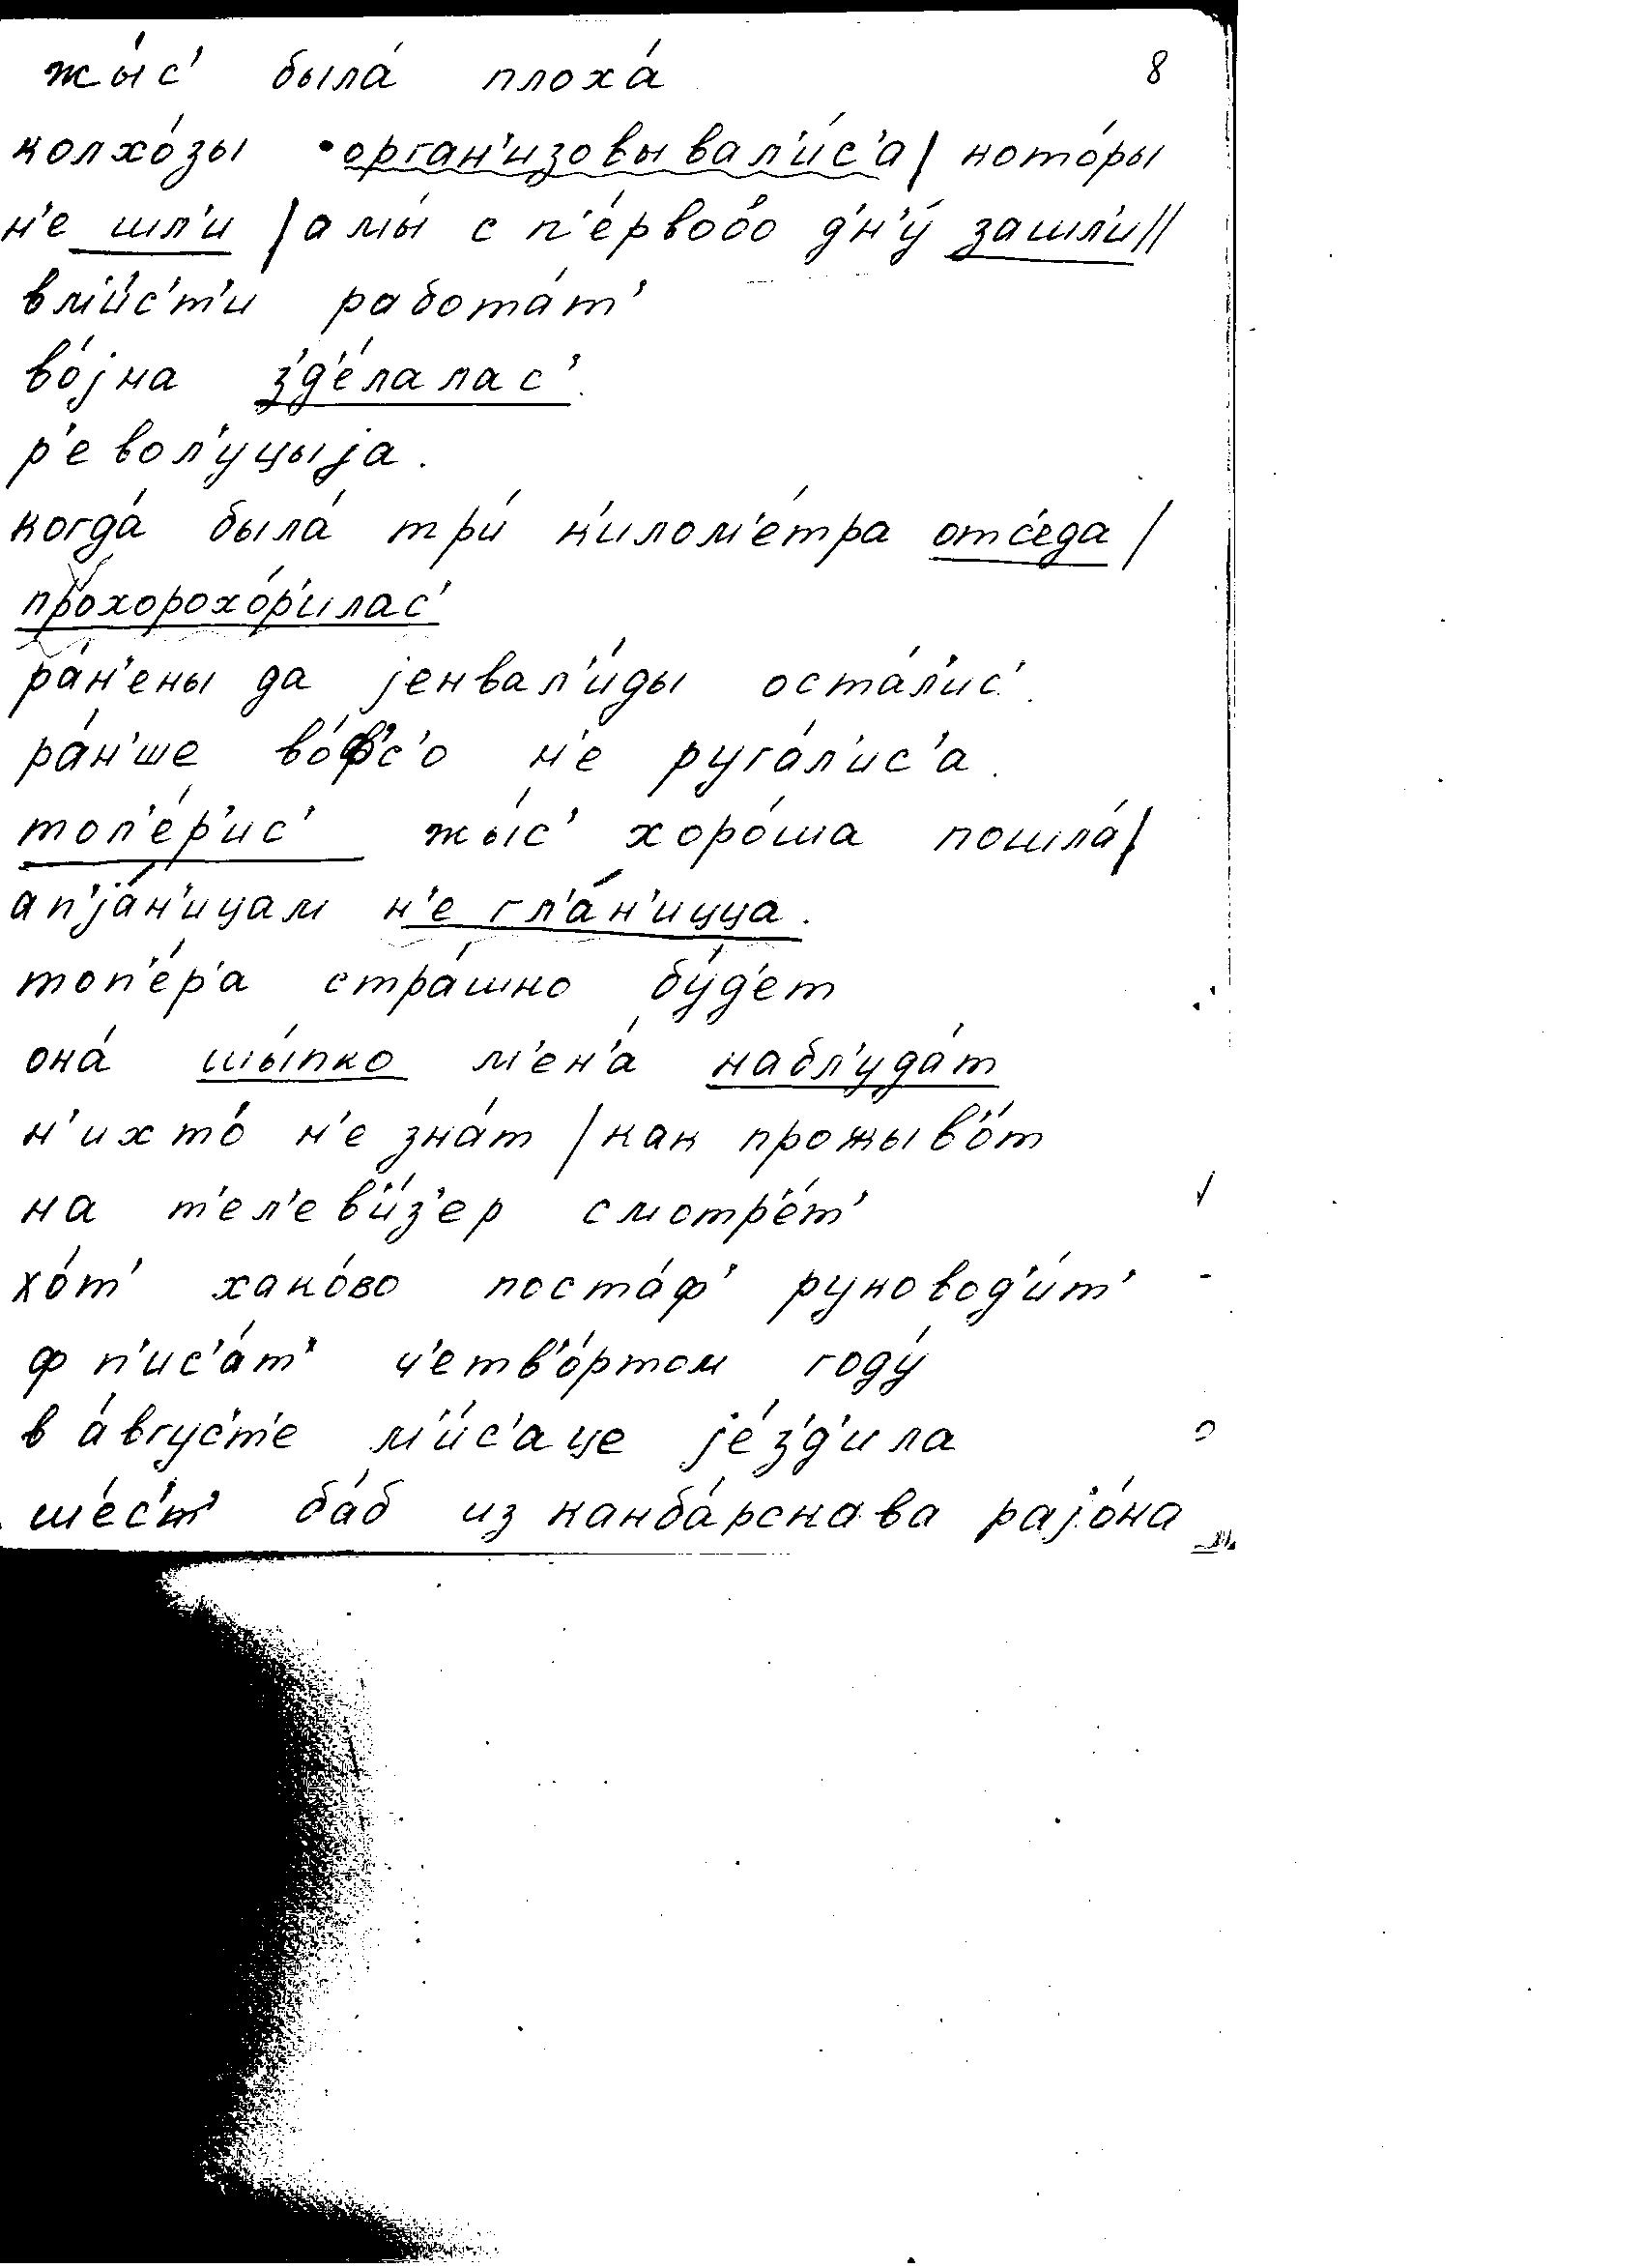 жы́с' была́ плоха́ 8
колхо́зы орган'изовывал'и́с'а | кото́ры
н'е шл'и́ | а мы́ с п'е́рвоо́о д'н'у́ зашл'и́ ||
вм'и́с'т'и работа́т'
во́јна з'д'е́лалас'.
р'евол'у́цыја.
когда́ была́ тр'и́ к'илом'е́тра отс'е́да |
прохорохо́р'илас'
ра́н'ены да јенвал'и́ды оста́л'ис'.
ра́н'ше во́ф'с'о н'е руга́л'ис'а.
топ'е́р'ис' жы́с' хоро́ша пошла́ |
а п'ја́н'ицам н'е гл'а́н'ицца.
топ'е́р'а стра́шно бу́д'ет
она́ шы́пко м'ен'а́ набл'уда́т
н'ихто́ н'е зна́т | как прожыв'о́т
на т'ел'ев'и́з'ер смотр'е́т'
хо́т' хако́во поста́ф' руковод'и́т'
ф п'ис'а́т' ч'етв'о́ртом году́
в а́вгус'т'е м'и́с'аце је́з'д'ила
ше́с'т' ба́б из канба́рскава рајо́на